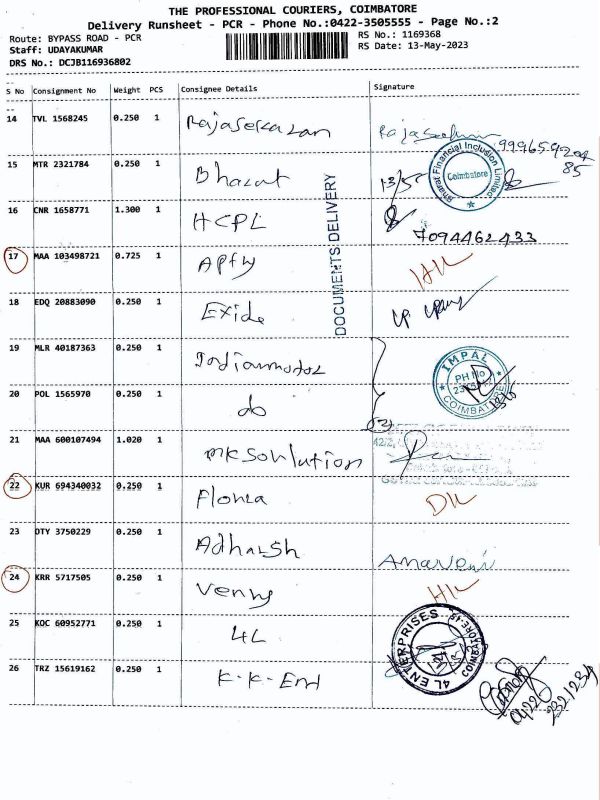 THE PROFESSIONAL COURIERS, COIMBATORE
Delivery Runsheet - PCR - Phone No.:0422-3505555 - Page No.:2
Route: BYPASS ROAD - PCR
Staff: UDAYAKUMAR
DRS No.: DCJB116936802
RS No.: 1169368
RS Date: 13-May-2023
S No Consignment No Weight PCS Consignee Details Signature
14 TVL 1568245 0.250 1 Rajasekaran
15 MTR 2321784 0.250 1 Bharat 13/5
Bharat Financial Inclusion Limited
Coimbatore
16 CNR 1658771 1.300 1 HCPL
7094462433
DOCUMENTS DELIVERY
17 MAA 103498721 0.725 1
18 EDQ 20883090 0.250 1 Exide
19 MLR 40187363 0.250 1 Indianmotor
IMPAL
PH No
COIMBATORE
20 POL 1565970 0.250 1 do
21 MAA 600107494 1.020 1 mksonlution
22 KUR 694340032 0.250 1 DIL
23 OTY 3750229 0.250 1 Adharsh
24 KRR 5717505 0.250 1 Venny
25 KOC 60952771 0.250 1 4L
4L ENTERPRISES
26 TRZ 15619162 0.250 1 K-K-End
0422
2321234